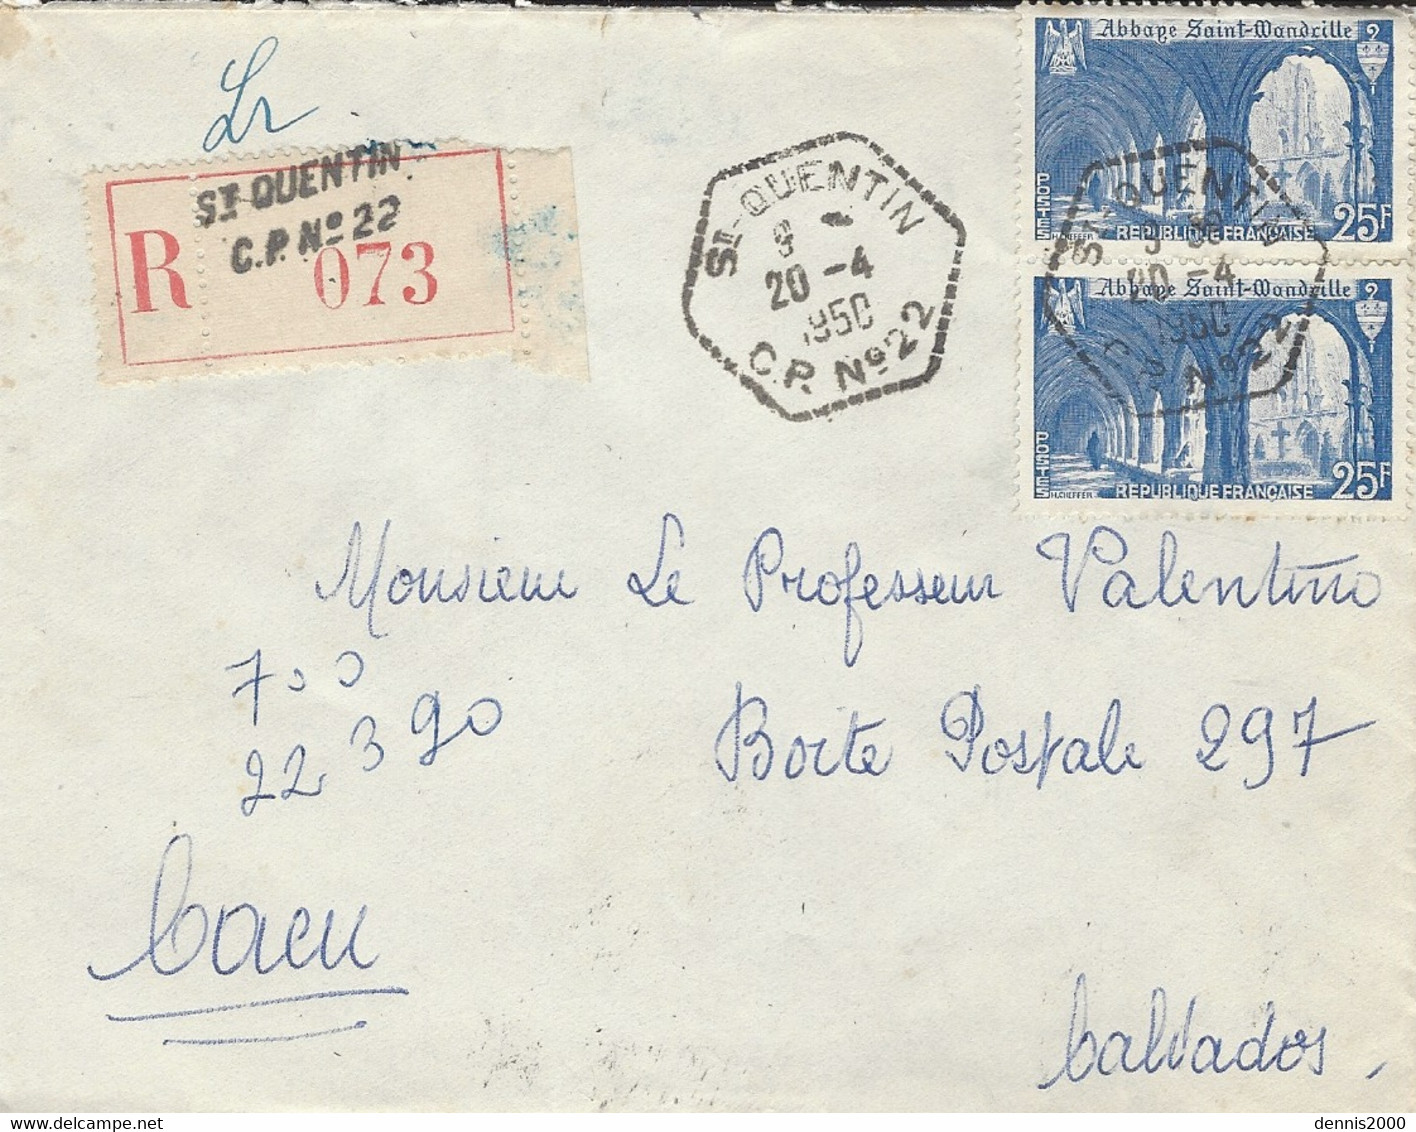 Lr
St QUENTIN
C.P. No 22
R 073
St-QUENTIN
20 -4
1950
C.P. No 22
Abbaye Saint-Wandrille
POSTES
H.CHEFFER
REPUBLIQUE FRANÇAISE
25F
St-QUENTIN
20 -4
1950
No 22
Abbaye Saint-Wandrille
POSTES
H.CHEFFER
REPUBLIQUE FRANÇAISE
25F
Monsieur Le Professeur Valentino
700
22 390
Boite Postale 297
Caen
Calvados
dennis2000